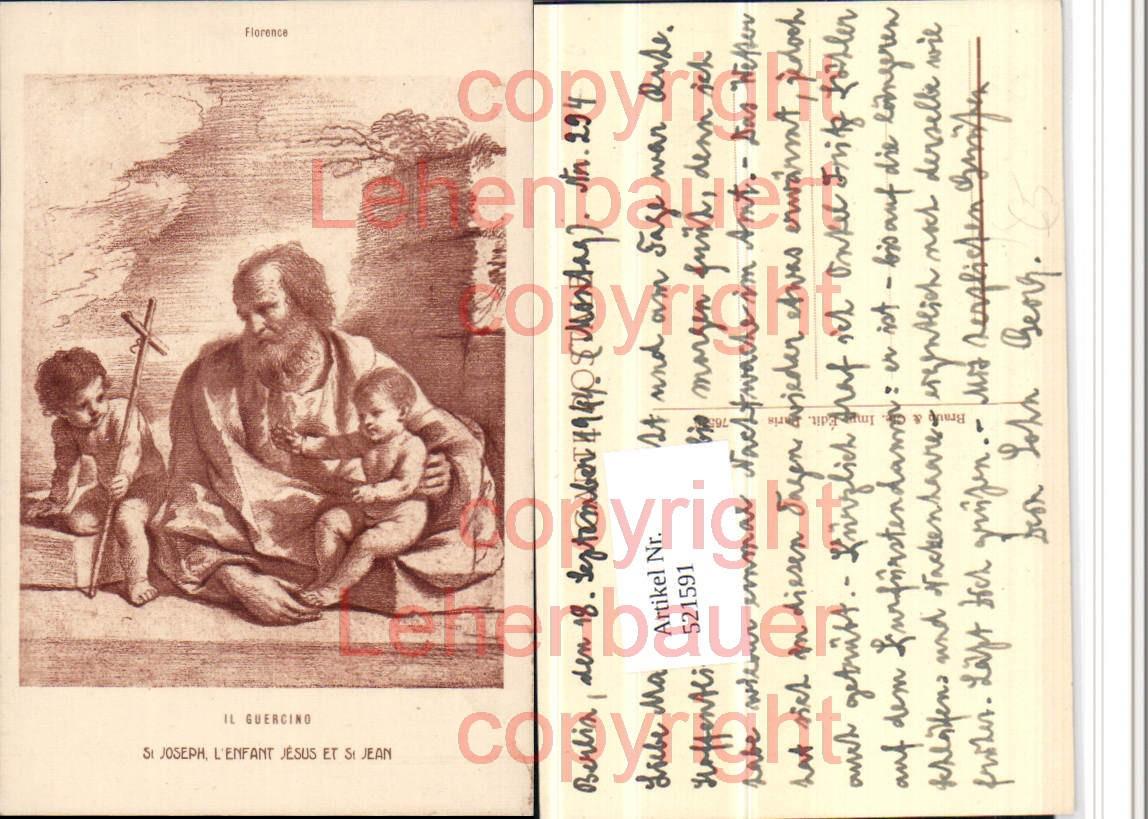 Florence
IL GUERCINO
St JOSEPH, L'ENFANT JÉSUS ET St JEAN
Berlin, den 18. September 1944. (Montag). Nr. 294
Liebe und am Tage war Ruhe.
Hoffentli morgen früh, denn ich
habe wieder einmal Nachtwache im Amt. - Das Wetter
hat sich in diesen Tagen wieder etwas erwärmt, jedoch
auch getrübt. - Kürzlich traf ich Onkel Fritz Köhler
auf dem Kurfürstendamm: er ist - bis auf die längeren
Schläfen- und Nackenhaare eigentlich noch derselbe wie
früher. Läßt Dich grüßen. - Mit
Dein Sohn Georg.
Braun & Cie, Imp. Édit. Paris
Artikel Nr.
521591
copyright
Lehenbauer
copyright
copyright
Lehenbauer
copyright